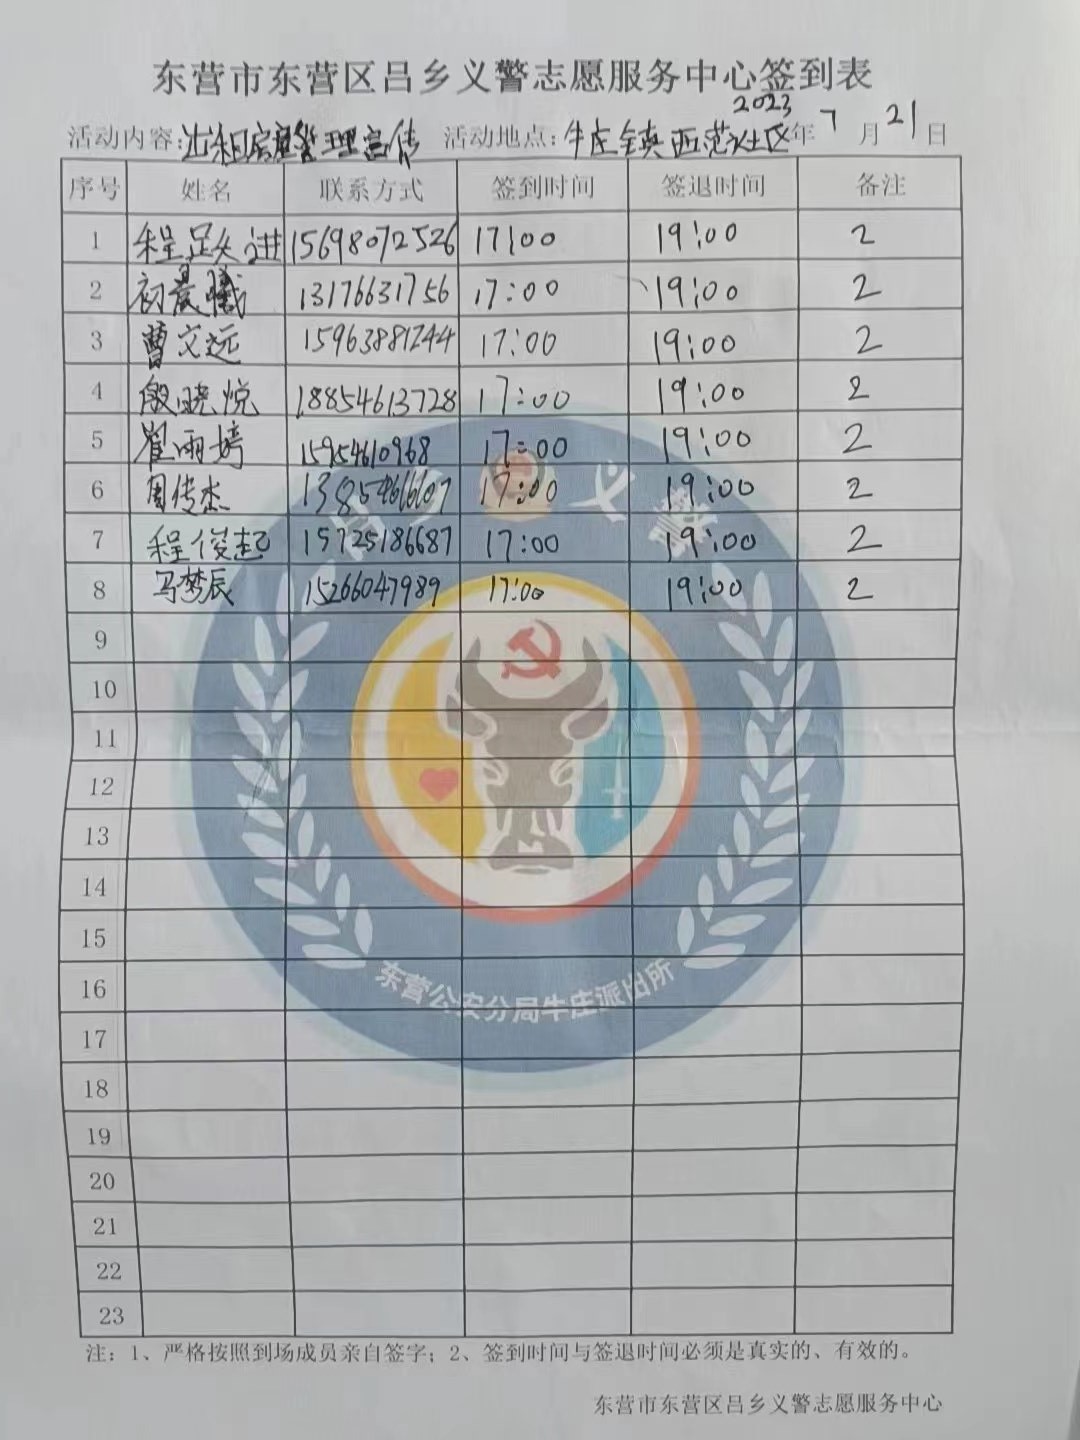 东营市东营区吕乡义警志愿服务中心签到表
2023
活动内容:出租房屋管理宣传 活动地点:牛庄镇西范社区 年 7 月 21 日
序号 姓名 联系方式 签到时间 签退时间 备注
1 程跃进 15698072526 17:00 19:00 2
2 初晨曦 13176631756 17:00 19:00 2
3 曹文远 15963881244 17:00 19:00 2
4 殷晓悦 18854613728 17:00 19:00 2
5 崔雨婷 15954610968 17:00 19:00 2
6 周传杰 13854616607 17:00 19:00 2
7 程俊起 15725186687 17:00 19:00 2
8 马梦辰 15266047989 17:00 19:00 2
9
10
11
12
13
14
15
16
17
18
19
20
21
22
23
吕乡义警
东营公安分局牛庄派出所
注:1、严格按照到场成员亲自签字;2、签到时间与签退时间必须是真实的、有效的。
东营市东营区吕乡义警志愿服务中心